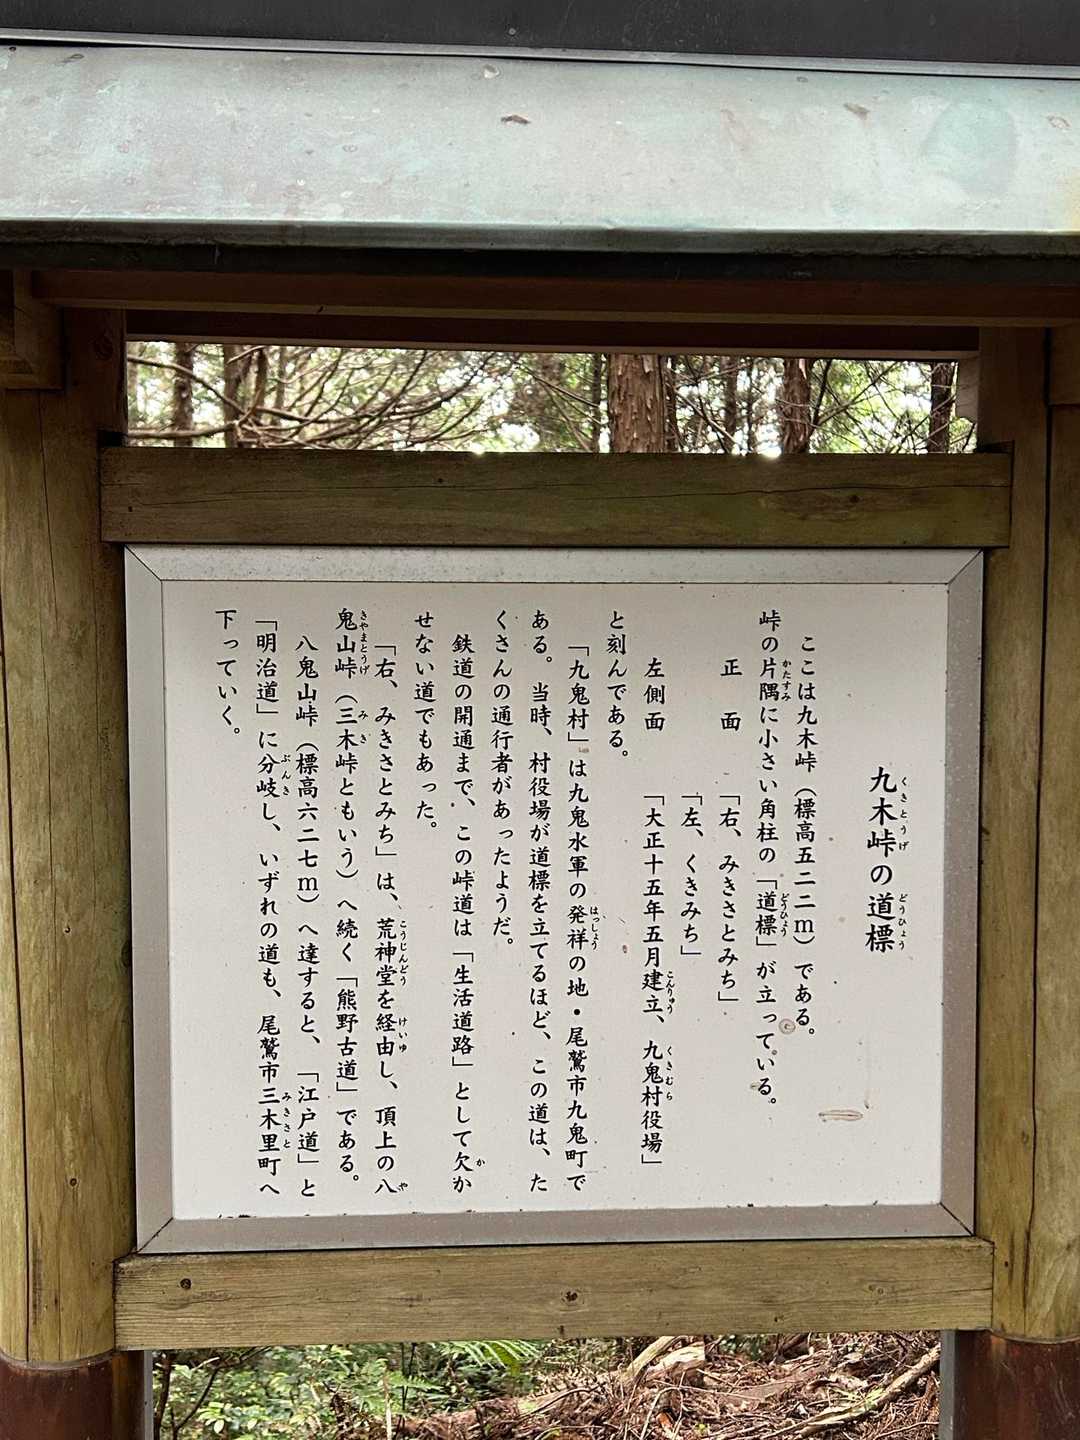 九木峠の道標
くきとうげ
どうひょう
ここは九木峠（標高五二二ｍ）である。
峠の片隅に小さい角柱の「道標」が立っている。
かたすみ
どうひょう
正　面　「右、みきさとみち」
「左、くきみち」
左側面　「大正十五年五月建立、九鬼村役場」
こんりゅう
くきむら
と刻んである。
「九鬼村」は九鬼水軍の発祥の地・尾鷲市九鬼町で
はっしょう
ある。当時、村役場が道標を立てるほど、この道は、た
くさんの通行者があったようだ。
鉄道の開通まで、この峠道は「生活道路」として欠か
か
せない道でもあった。
「右、みきさとみち」は、荒神堂を経由し、頂上の八
こうじんどう
けいゆ
や
鬼山峠（三木峠ともいう）へ続く「熊野古道」である。
きやまとうげ
みき
八鬼山峠（標高六二七ｍ）へ達すると、「江戸道」と
「明治道」に分岐し、いずれの道も、尾鷲市三木里町へ
ぶんき
みきさと
下っていく。